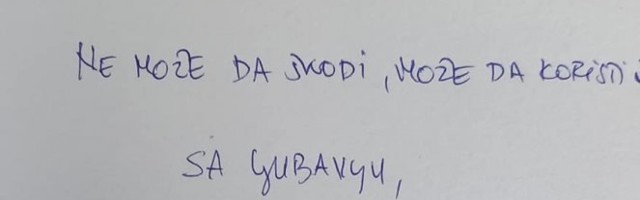 NE MOŽE DA ŠKODI, MOŽE DA KORISTI!
SA LJUBAVLJU,